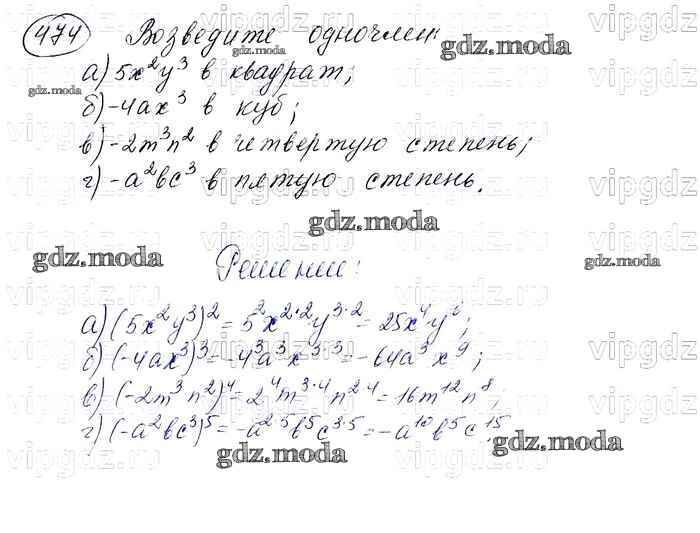 474 Возведите одночлен:
а) 5x²y³ в квадрат;
б) -4ax³ в куб;
в) -2m³n² в четвертую степень;
г) -a²bc³ в пятую степень.
Решение:
а) (5x²y³)² = 5²x²˙²y³˙² = 25x⁴y⁶;
б) (-4ax³)³ = -4³a³x³˙³ = -64a³x⁹;
в) (-2m³n²)⁴ = 2⁴m³˙⁴n²˙⁴ = 16m¹²n⁸;
г) (-a²bc³)⁵ = -a²˙⁵b⁵c³˙⁵ = -a¹⁰b⁵c¹⁵.
gdz.moda
gdz.moda
gdz.moda
gdz.moda
gdz.moda
gdz.moda
gdz.moda
vipgdz